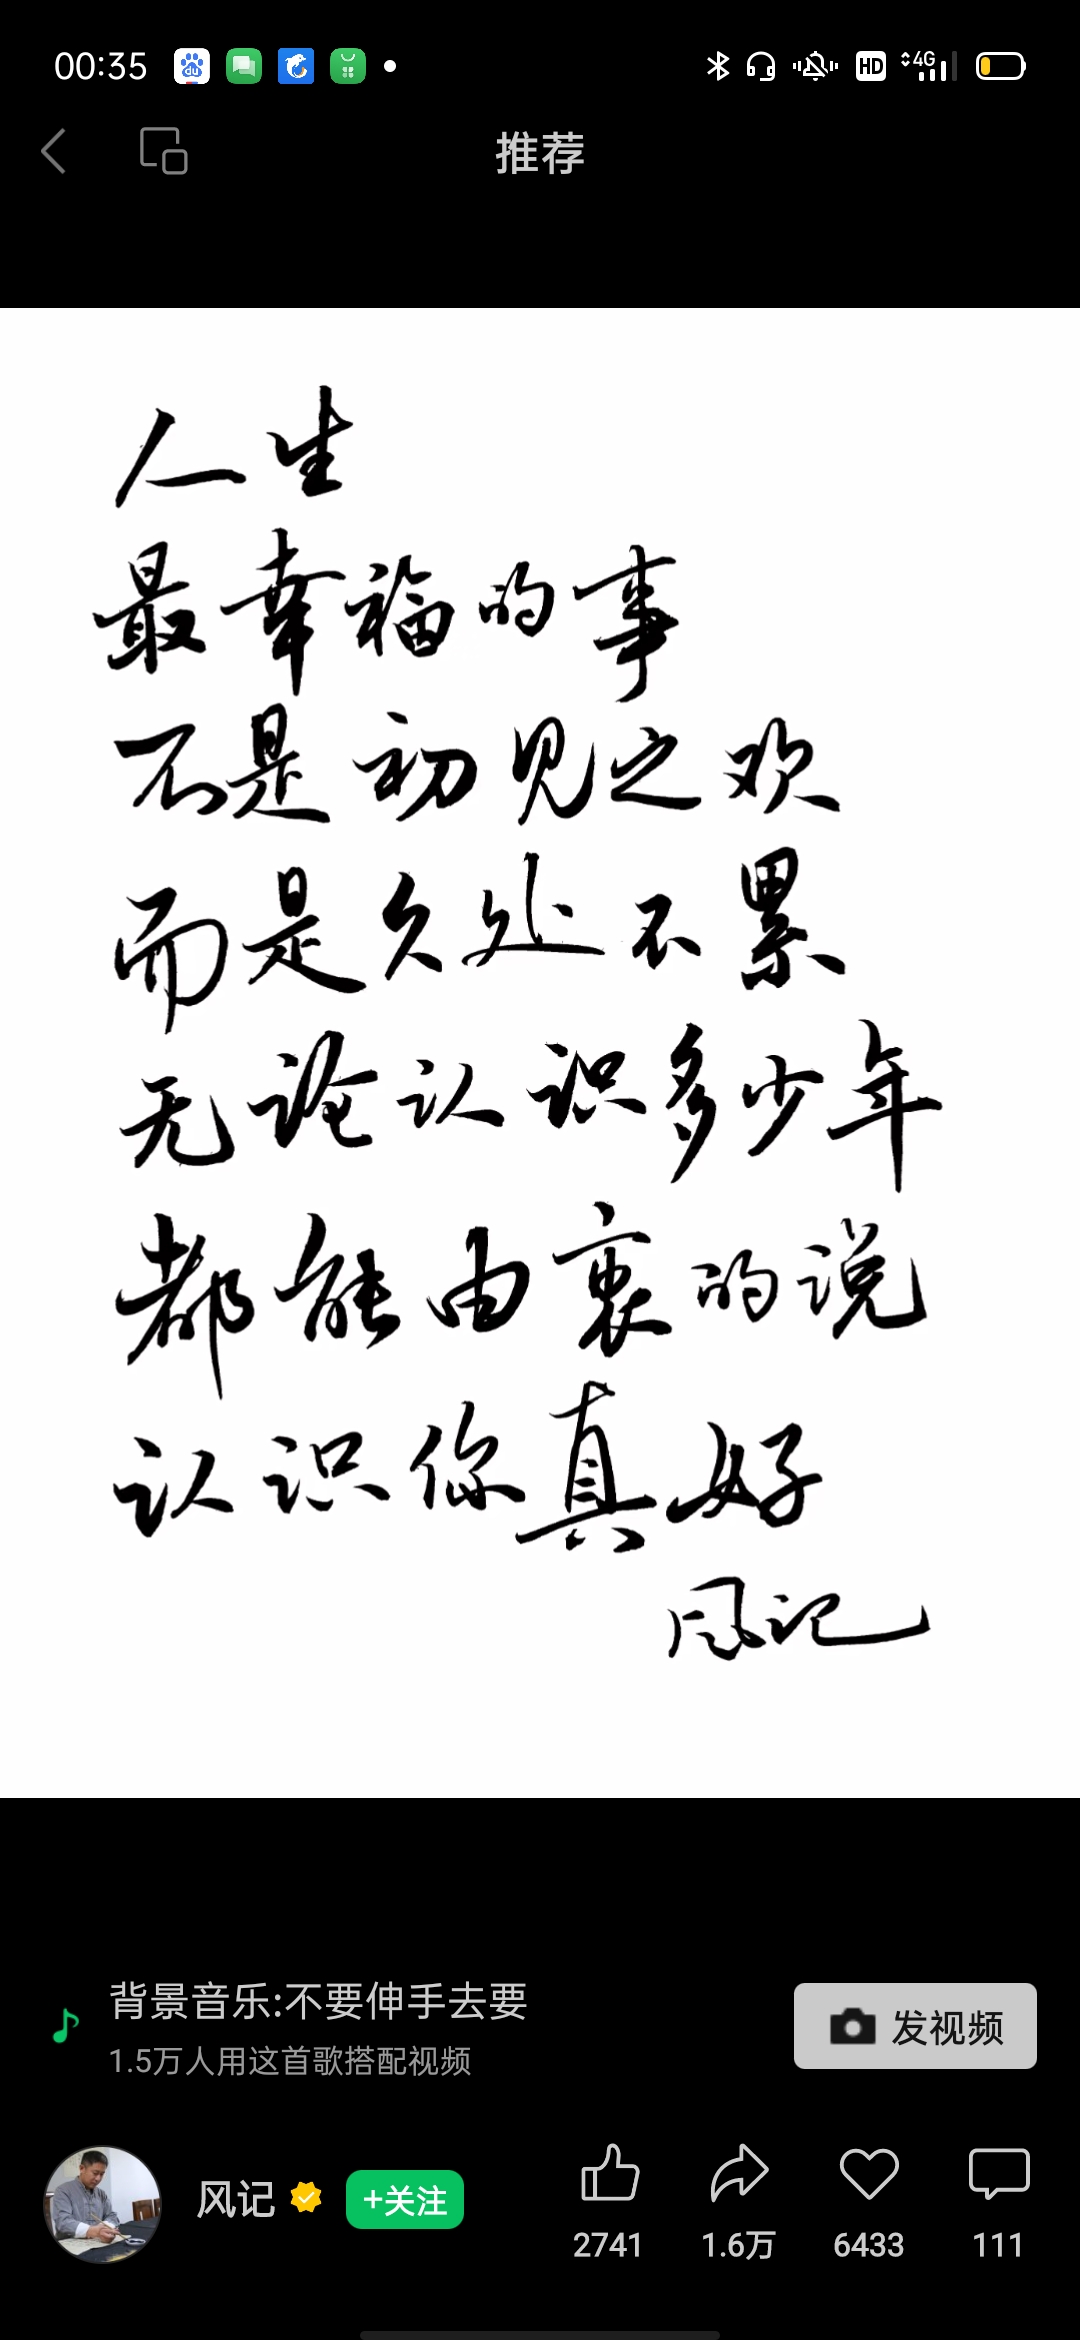 00:35 HD 4G
推荐
人生
最幸福的事
不是初见之欢
而是久处不累
无论认识多少年
都能由衷的说
认识你真好
风记
背景音乐:不要伸手去要
1.5万人用这首歌搭配视频
发视频
风记 +关注
2741 1.6万 6433 111